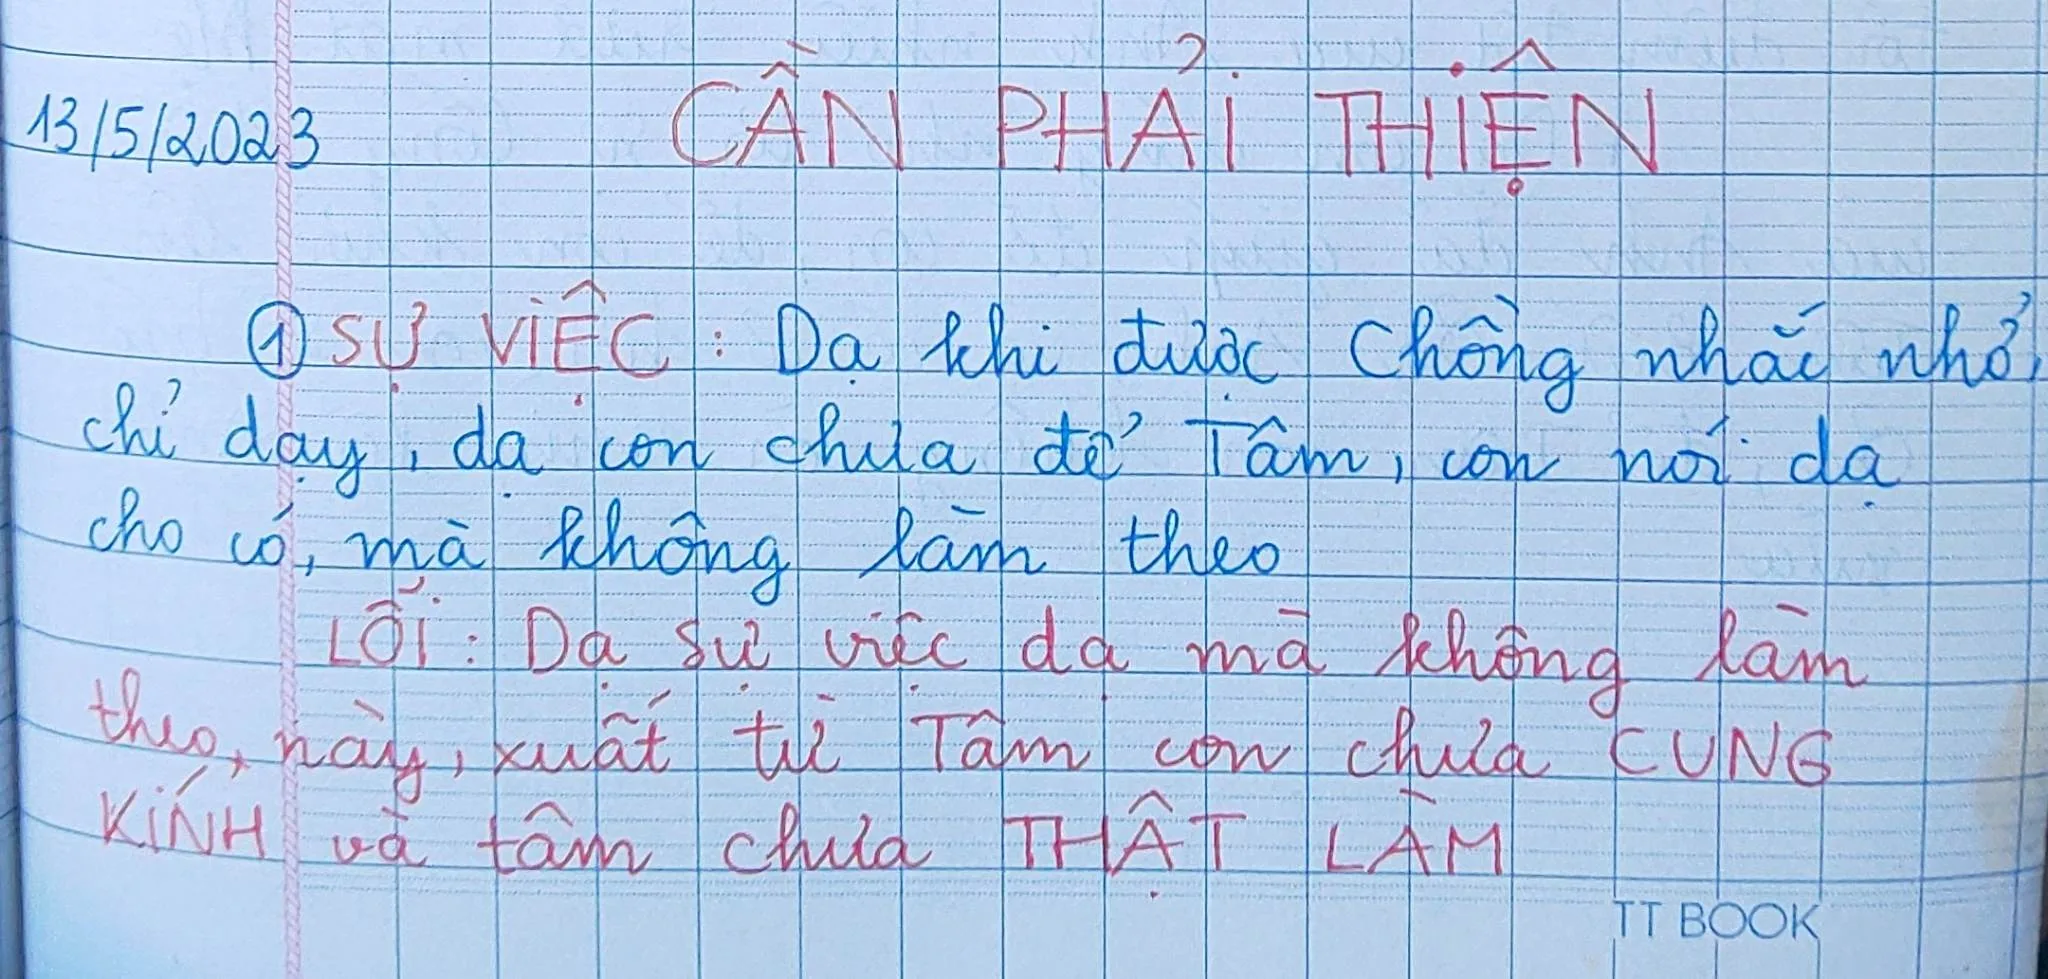 CẦN PHẢI THIỆN
13/5/2023
① SỰ VIỆC: Dạ khi được Chồng nhắc nhở,
chỉ dạy, dạ con chưa để Tâm, con nói dạ
cho có, mà không làm theo
LỖI: Dạ sự việc dạ mà không làm
theo, này, xuất từ Tâm con chưa CUNG
KÍNH và tâm chưa THẬT LÀM
TT BOOK